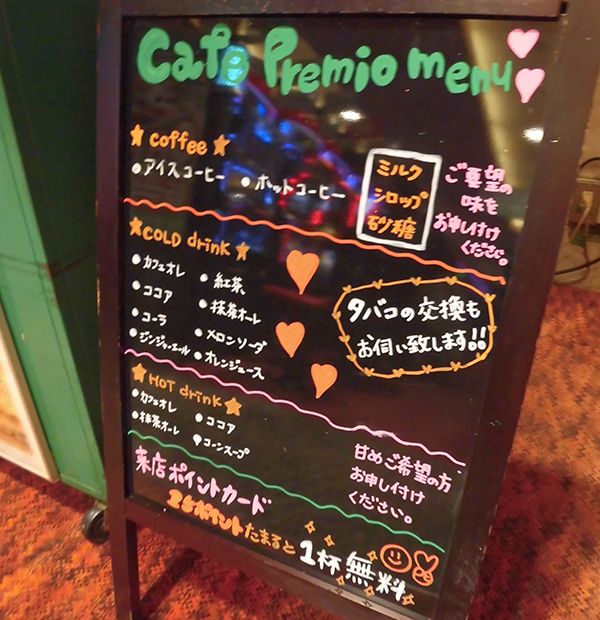 Cafe Premio menu
★ coffee ★
●アイスコーヒー ●ホットコーヒー
ミルク
シロップ
砂糖
ご要望の
味を
お申し付け
ください。
★COLD drink★
●カフェオレ ●紅茶
●ココア ●抹茶オーレ
●コーラ ●メロンソーダ
●ジンジャーエール ●オレンジュース
タバコの交換も
お伺い致します!!
★HOT drink★
●カフェオレ ●ココア
●抹茶オーレ ●コーンスープ
甘めご希望の方
お申し付け
ください。
来店ポイントカード
25ポイントたまると1杯無料